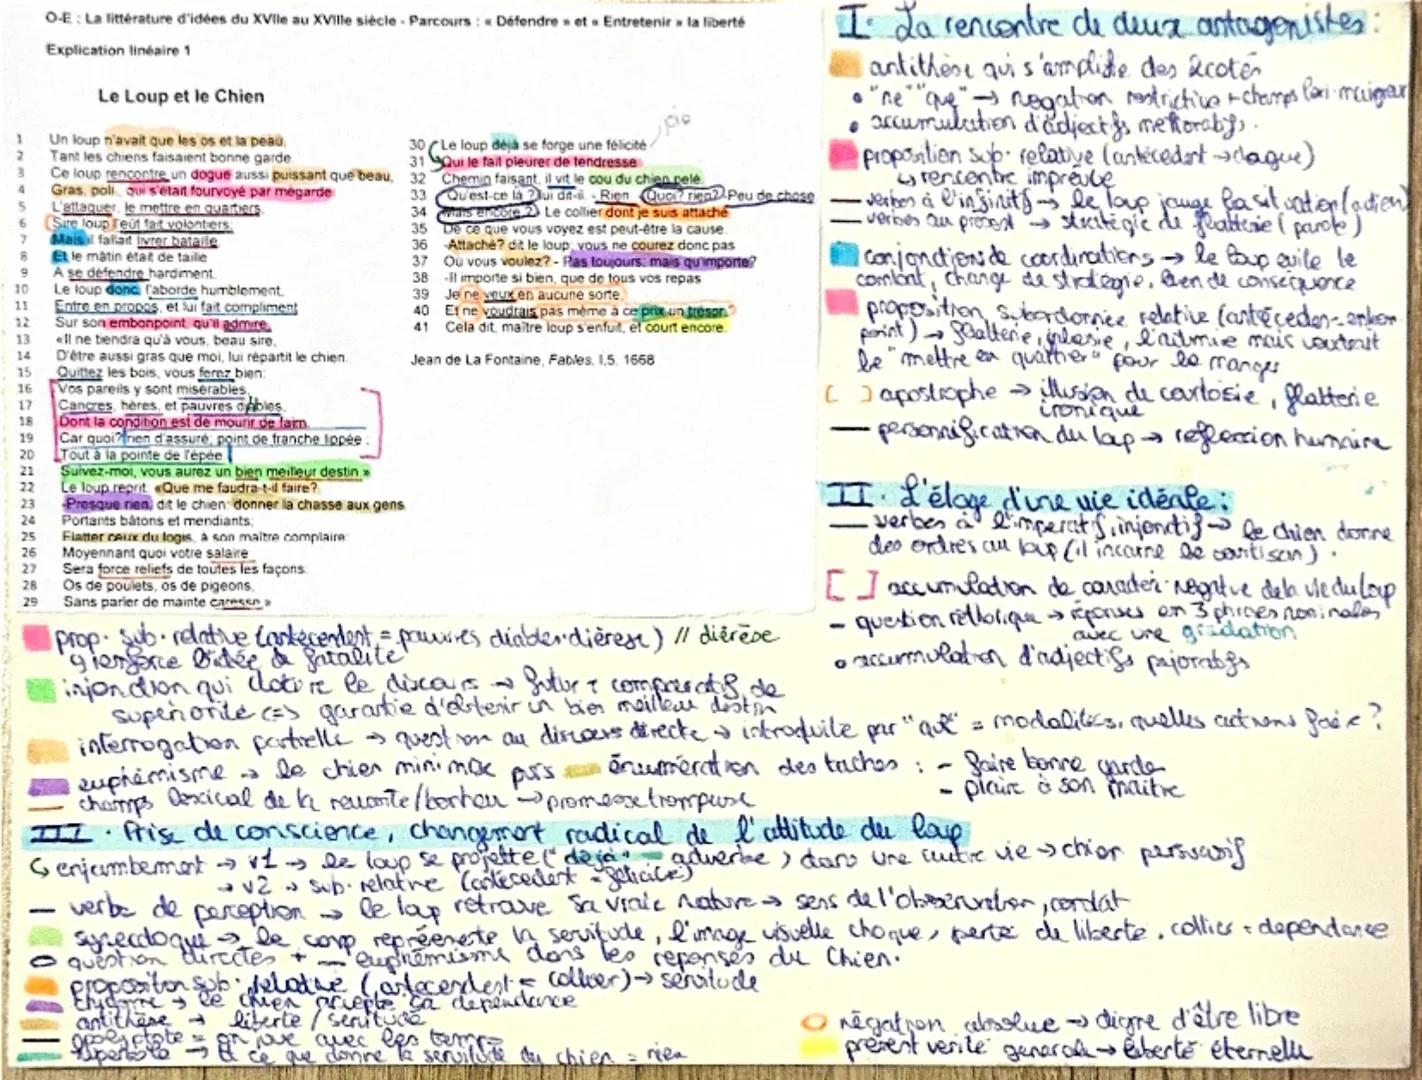 O-E : La littérature d'idées du XVIIe au XVIIIe siècle - Parcours : « Défendre » et « Entretenir » la liberté
Explication linéaire 1
Le Loup et le Chien
1 Un loup n'avait que les os et la peau,
2 Tant les chiens faisaient bonne garde.
3 Ce loup rencontre un dogue aussi puissant que beau,
4 Gras, poli, qui s'était fourvoyé par mégarde.
5 L'attaquer, le mettre en quartiers,
6 Sire loup l'eût fait volontiers;
7 Mais il fallait livrer bataille
8 Et le mâtin était de taille
9 A se défendre hardiment.
10 Le loup donc, l'aborde humblement,
11 Entre en propos, et lui fait compliment
12 Sur son embonpoint, qu'il admire.
13 «Il ne tiendra qu'à vous, beau sire,
14 D'être aussi gras que moi, lui répartit le chien.
15 Quittez les bois, vous ferez bien:
16 Vos pareils y sont misérables,
17 Cancres, hères, et pauvres diables,
18 Dont la condition est de mourir de faim.
19 Car quoi? rien d'assuré, point de franche lippée ;
20 Tout à la pointe de l'épée
21 Suivez-moi, vous aurez un bien meilleur destin »
22 Le loup reprit: «Que me faudra-t-il faire?
23 -Presque rien, dit le chien: donner la chasse aux gens
24 Portants bâtons et mendiants;
25 Flatter ceux du logis, à son maître complaire:
26 Moyennant quoi votre salaire
27 Sera force reliefs de toutes les façons:
28 Os de poulets, os de pigeons,
29 Sans parler de mainte caresse »
30 Le loup déjà se forge une félicité
31 Qui le fait pleurer de tendresse
32 Chemin faisant, il vit le cou du chien pelé.
33 Qu'est-ce là ? lui dit-il. - Rien. Quoi? rien? Peu de chose
34 Mais encore ? Le collier dont je suis attaché
35 De ce que vous voyez est peut-être la cause.
36 -Attaché? dit le loup: vous ne courez donc pas
37 Où vous voulez? - Pas toujours, mais qu'importe?
38 -Il importe si bien, que de tous vos repas
39 Je ne veux en aucune sorte,
40 Et ne voudrais pas même à ce prix un trésor.
41 Cela dit, maître loup s'enfuit, et court encore.
Jean de La Fontaine, Fables, I,5. 1668
I. La rencontre de deux antagonistes :
antithèse qui s'amplifie des 2 cotés
• "ne" "que" → négation restrictive + champs
• accumulation d'adjectifs mélioratifs.
proposition sub. relative (antécédent → dogue)
↳ rencontre imprévue
— verbes à l'infinitif → le loup jauge la situation (action)
— verbes au présent → stratégie de flatterie (parole)
conjonctions de coordinations → le loup évite le
combat, change de stratégie, lien de conséquence
proposition subordonnée relative (antécédent =
point) → flatterie, l'admire mais voudrait
le "mettre en quartier" pour le manger
[ ] apostrophe → illusion de courtoisie, flatterie
ironique
— personnification du loup → réflexion humaine
II. L'éloge d'une vie idéale :
— verbes à l'impératif, injonctif → le chien donne
des ordres au loup (il incarne le courtisan).
[ ] accumulation de caractér. négative de la vie du loup
- question réthorique → réponses en 3 phrases nominales
avec une gradation
• accumulation d'adjectifs péjoratifs
prop. sub. relative (antécédent = pauvres diables) // diérèse
renforce l'idée de fatalité
injonction qui cloture le discours → futur + comparatif de
supériorité <=> garantie d'obtenir un bien meilleur destin
interrogation partielle → question au discours directe → introduite par "que" = modalités, quelles actions faire ?
euphémisme → le chien minimise puis énumération des taches : - faire bonne garde
- plaire à son maitre
champs lexical de la → promesse trompeuse
III. Prise de conscience, changement radical de l'attitude du loup
↳ enjambement → v1 → le loup se projette ("déjà" = adverbe) dans une autre vie → chien persuasif
→ v2 → sub. relative (antécédent = félicité)
— verbe de perception → le loup retrouve sa vraie nature → sens de l'observation, constat
synecdoque → le corps représente la servitude, l'image visuelle choque, perte de liberté. collier = dependance
question directes + — euphémisme dans les réponses du Chien.
proposition sub. relative (antécédent = collier) → servitude
→ le chien accepte sa dependance
antithèse → liberté / servitude
polyptote = on joue avec les temps
hyperbole → et ce que donne la servitude du chien = rien
négation absolue → digne d'être libre
présent vérité générale → liberté éternelle